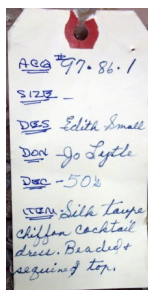 ACQ # 97.86.1
SIZE -
DES Edith Small
DON - Jo Lytle
DEC - 50s
ITEM Silk taupe
chiffon cocktail
dress. Beaded &
sequined top.